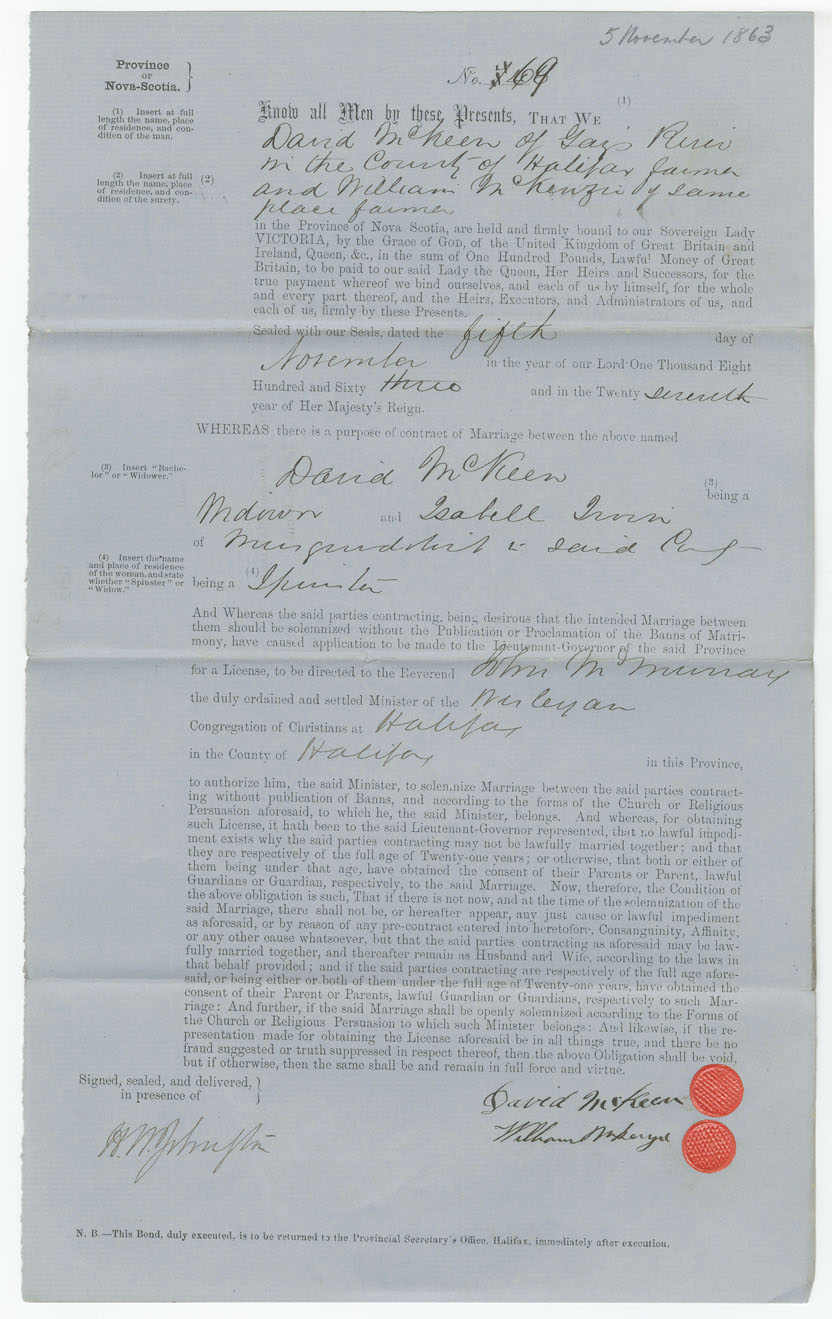 5 November 1863
Province
OF
Nova-Scotia.
No. 69
(1) Insert at full
length the name, place
of residence, and con-
dition of the man.
(1)
Know all Men by these Presents, THAT WE
David McKeen of Gays River
in the County of Halifax farmer
(2) Insert at full
length the name, place
of residence, and con-
dition of the surety.
(2)
and William McKenzie of same
place farmer
in the Province of Nova Scotia, are held and firmly bound to our Sovereign Lady
VICTORIA, by the Grace of GOD, of the United Kingdom of Great Britain and
Ireland, Queen, &c., in the sum of One Hundred Pounds, Lawful Money of Great
Britain, to be paid to our said Lady the Queen, Her Heirs and Successors, for the
true payment whereof we bind ourselves, and each of us by himself, for the whole
and every part thereof, and the Heirs, Executors, and Administrators of us, and
each of us, firmly by these Presents.
Sealed with our Seals, dated the fifth day of
November in the year of our Lord One Thousand Eight
Hundred and Sixty three and in the Twenty seventh
year of Her Majesty's Reign.
WHEREAS there is a purpose of contract of Marriage between the above named
(3) Insert "Bache-
lor" or "Widower."
David McKeen
(3)
being a
Widower and Isabell Irvin
of in said
(4) Insert the name
and place of residence
of the woman, and state
whether "Spinster" or
"Widow."
(4)
being a Spinster
And Whereas the said parties contracting, being desirous that the intended Marriage between
them should be solemnized without the Publication or Proclamation of the Banns of Matri-
mony, have caused application to be made to the Lieutenant-Governor of the said Province
for a License, to be directed to the Reverend John McMurray
the duly ordained and settled Minister of the Wesleyan
Congregation of Christians at Halifax
in the County of Halifax in this Province,
to authorize him, the said Minister, to solemnize Marriage between the said parties contract-
ing without publication of Banns, and according to the forms of the Church or Religious
Persuasion aforesaid, to which he, the said Minister, belongs. And whereas, for obtaining
such License, it hath been to the said Lieutenant-Governor represented, that no lawful impedi-
ment exists why the said parties contracting may not be lawfully married together; and that
they are respectively of the full age of Twenty-one years; or otherwise, that both or either of
them being under that age, have obtained the consent of their Parents or Parent, lawful
Guardians or Guardian, respectively, to the said Marriage. Now, therefore, the Condition of
the above obligation is such, That if there is not now, and at the time of the solemnization of the
said Marriage, there shall not be, or hereafter appear, any just cause or lawful impediment
as aforesaid, or by reason of any pre-contract entered into heretofore, Consanguinity, Affinity,
or any other cause whatsoever, but that the said parties contracting as aforesaid may be law-
fully married together, and thereafter remain as Husband and Wife, according to the laws in
that behalf provided; and if the said parties contracting are respectively of the full age afore-
said, or being either or both of them under the full age of Twenty-one years, have obtained the
consent of their Parent or Parents, lawful Guardian or Guardians, respectively to such Mar-
riage: And further, if the said Marriage shall be openly solemnized according to the Forms of
the Church or Religious Persuasion to which such Minister belongs: And likewise, if the re-
presentation made for obtaining the License aforesaid be in all things true, and there be no
fraud suggested or truth suppressed in respect thereof, then the above Obligation shall be void,
but if otherwise, then the same shall be and remain in full force and virtue.
Signed, sealed, and delivered,
in presence of
David McKeen
H. W. Johnston
William McKenzie
N. B.—This Bond, duly executed, is to be returned to the Provincial Secretary's Office, Halifax, immediately after execution.